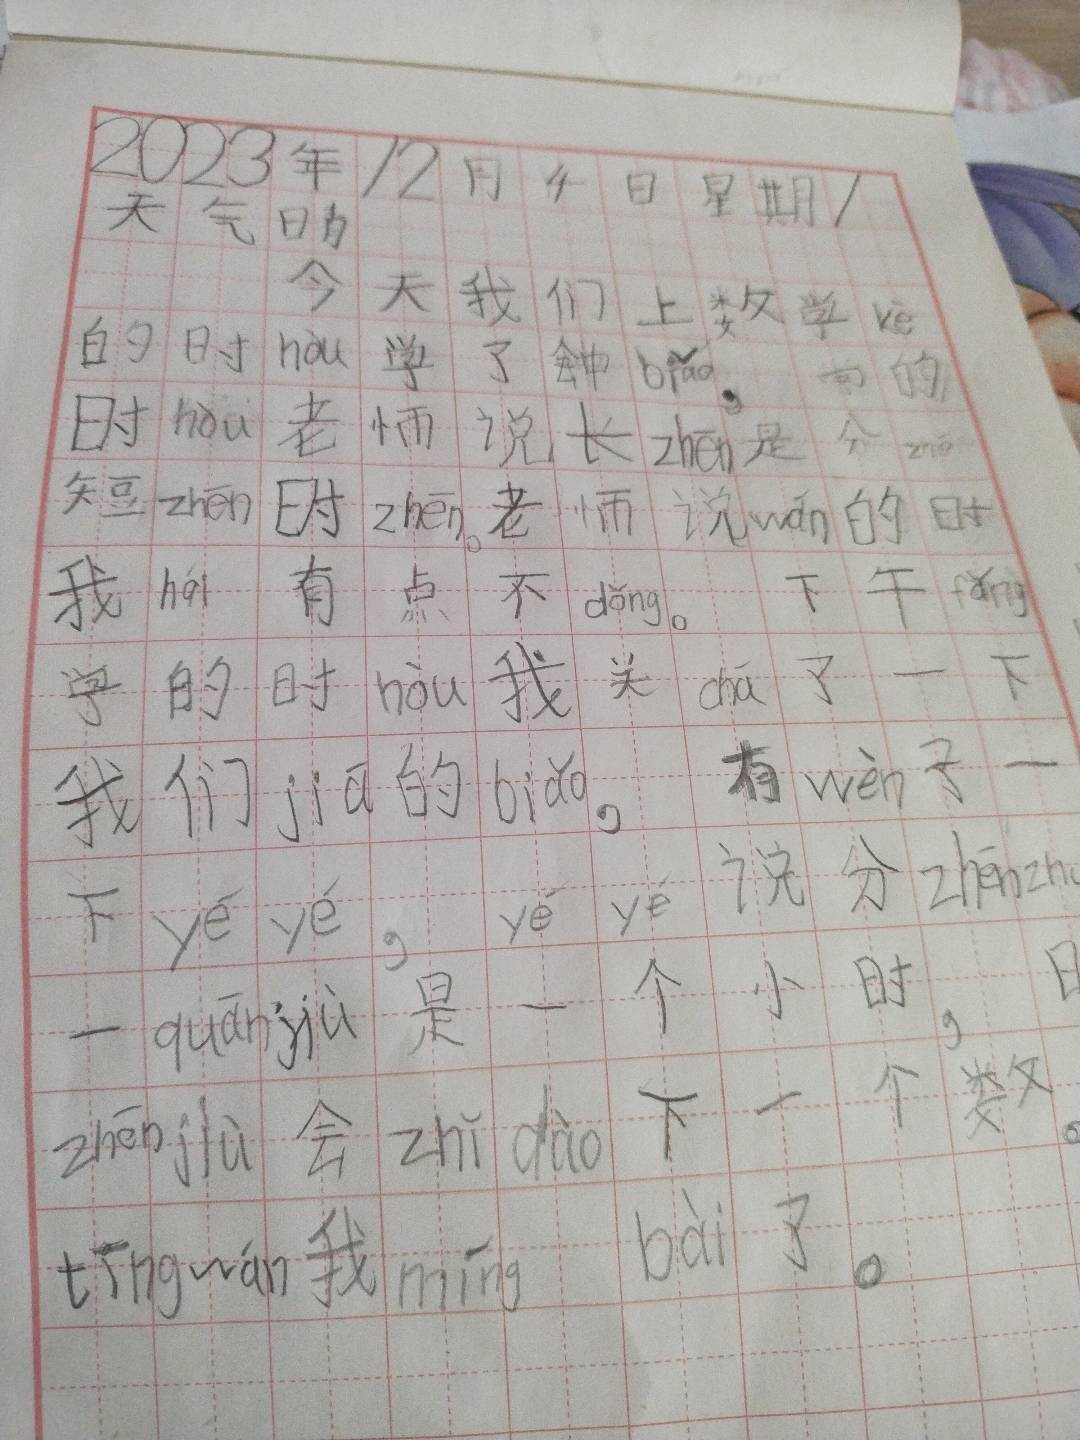 2023年12月4日星期1
天气日
今天我们上数学kè
的时hòu学了钟biǎo，尚的
时hòu老师说长zhēn是分zhē
短zhēn时zhēn。老师说wán的时
我hái有点不dǒng。下午fàng
学的时hòu我关chá了一下
我们jiā的biǎo，有wèn了一
下yé yé，yé yé说分zhēnzhu
一quānjiù是一个小时，日
zhēnjiù会zhǐ dào下一个数。
tīngwán我míng bái了。